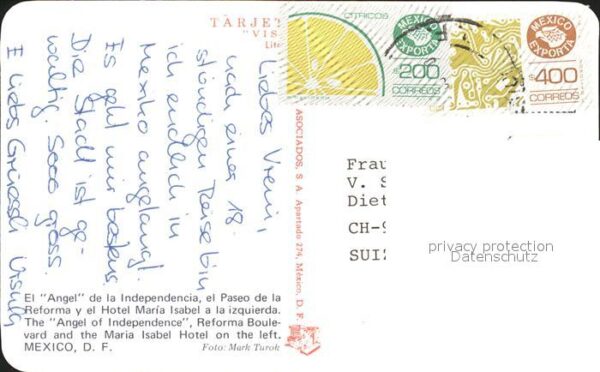 TARJET
"VIS
Lite
Liebes Vreni,
nach einer 18-
stündigen Reise bin
ich endlich in
Mexiko angelangt.
Es geht mir bestens
Die Stadt ist ge-
waltig. Sooo gross.
E liebs Grüessli Ursula
CITRICOS
MEXICO
EXPORTA
$200
CORREOS
MEXICO
EXPORTA
$400
CORREOS
ASOCIADOS, S. A. Apartado 274, México, D. F.
Frau
V. S
Diet
CH-9
SUIZ
privacy protection
Datenschutz
El "Angel" de la Independencia, el Paseo de la
Reforma y el Hotel María Isabel a la izquierda.
The "Angel of Independence", Reforma Boule-
vard and the Maria Isabel Hotel on the left.
MEXICO, D. F.
Foto: Mark Turok